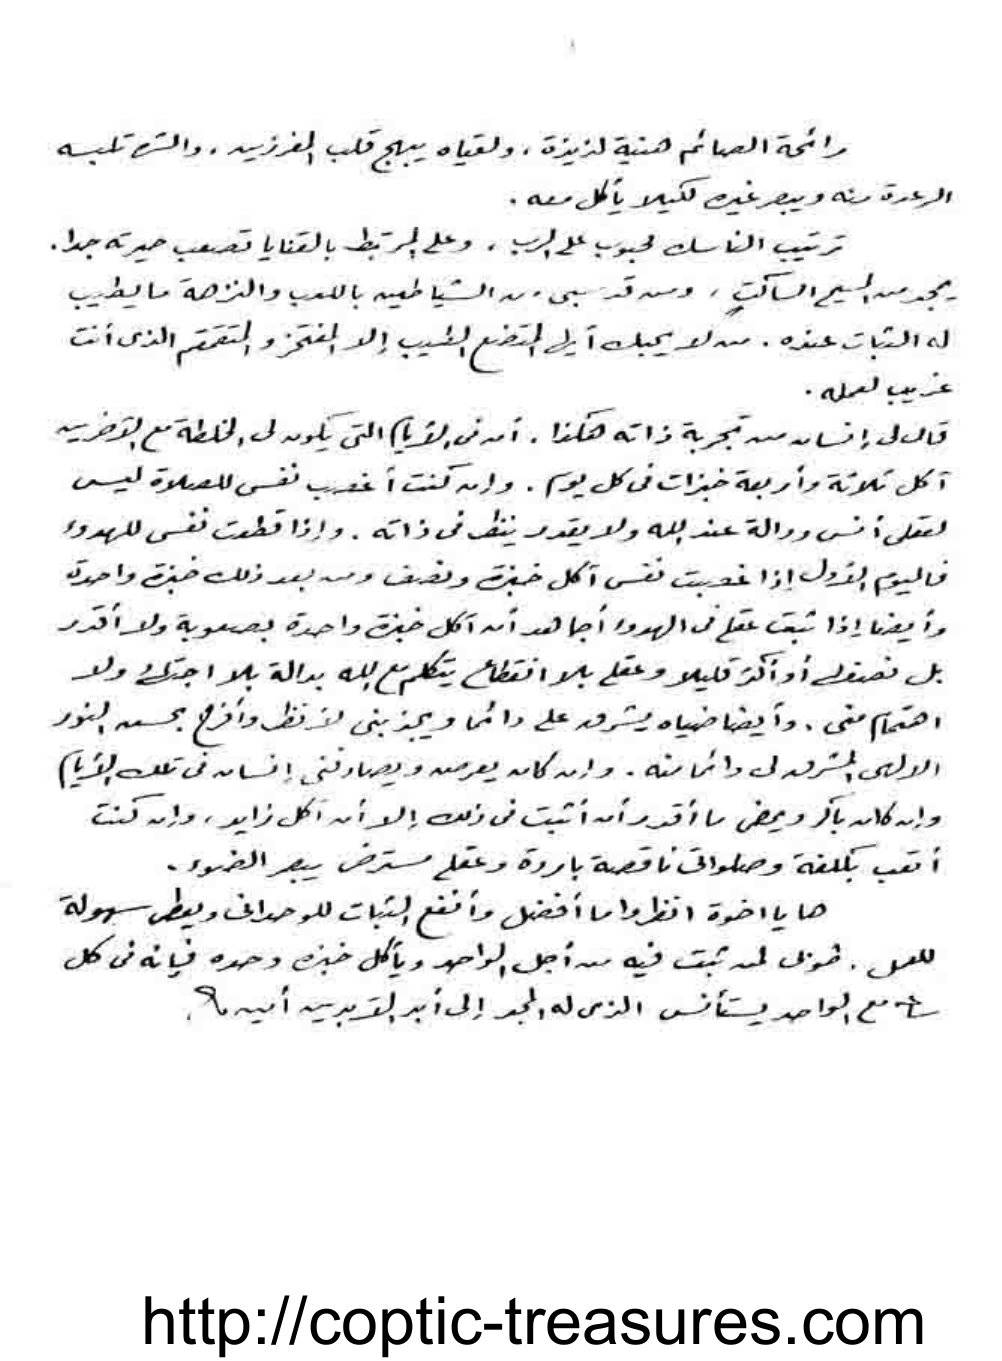 رائحة الصائم هنية لذيذة ، ولقياه يبهج قلب المفرزين ، والشره تلبسه
الرعدة منه ويبصر غيره لكيلا يأكل معه .
ترتيب الناسك محبوب على الرب ، وعلى المرتبط بالقنايا تصعب حيرته جدا .
يمجد من المسيح الساكت ، ومن قد سبى من الشياطين باللعب والنزهة ما يطيب
له الثبات عنده . من لا يحبك أيها المتضع الطيب إلا المفتخر و المتقمقم الذى أنت
غريب لعمله .
قال لى إنسان من تجربة ذاته هكذا . أن فى الأيام التى يكون لى الخلطة مع الآخرين
آكل ثلاثة وأربعة خبزات فى كل يوم . وإن كنت أغصب نفسى للصلاة ليس
لعقلى أنس ودالة عند الله ولا يقدر ينظر فى ذاته . وإذا قطعت نفسى للهدوء
فاليوم الأول إذا غصبت نفسى آكل خبزة ونصف ومن بعد ذلك خبزة واحدة
وأيضا إذا ثبت عقلى فى الهدوء أجاهد أن آكل خبزة واحدة بصعوبة ولا أقدر
بل نصفها أو أكثر قليلا وعقلى بلا انقطاع يتكلم مع الله بدالة بلا اجتهاد ولا
اهتمام منى . وأيضا ضياه يشرق على دائما ويجذبنى لأنظر وأفرح بحسن النور
الالهى المشرق لى دائما منه . وإن كان يعرض ويصادفنى إنسان فى تلك الأيام
وإن كان باكر ويمضى ما أقدر أن أثبت فى ذلك إلا أن آكل زايد ، وإن كنت
أتعب بكلفة وصلواتى ناقصة باردة وعقلى مسترخ يبصر الضوء .
ها يا اخوة انظروا ما أفضل وأنفع الثبات للوحدانى ويعطى سهولة
للعمل . طوبى لمن ثبت فيه من أجل الواحد ويأكل خبزه وحده فإنه فى كل
ساعة مع الواحد يستأنس الذى له المجد إلى أبد الآبدين أمين
http://coptic-treasures.com